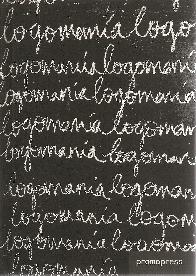 logomanía logo
logomanía logoman
ogomanía logomania
logomanía logoman
logomanía logoman
logomanía logoman
logomanía logom
logomanía logoma
promopress